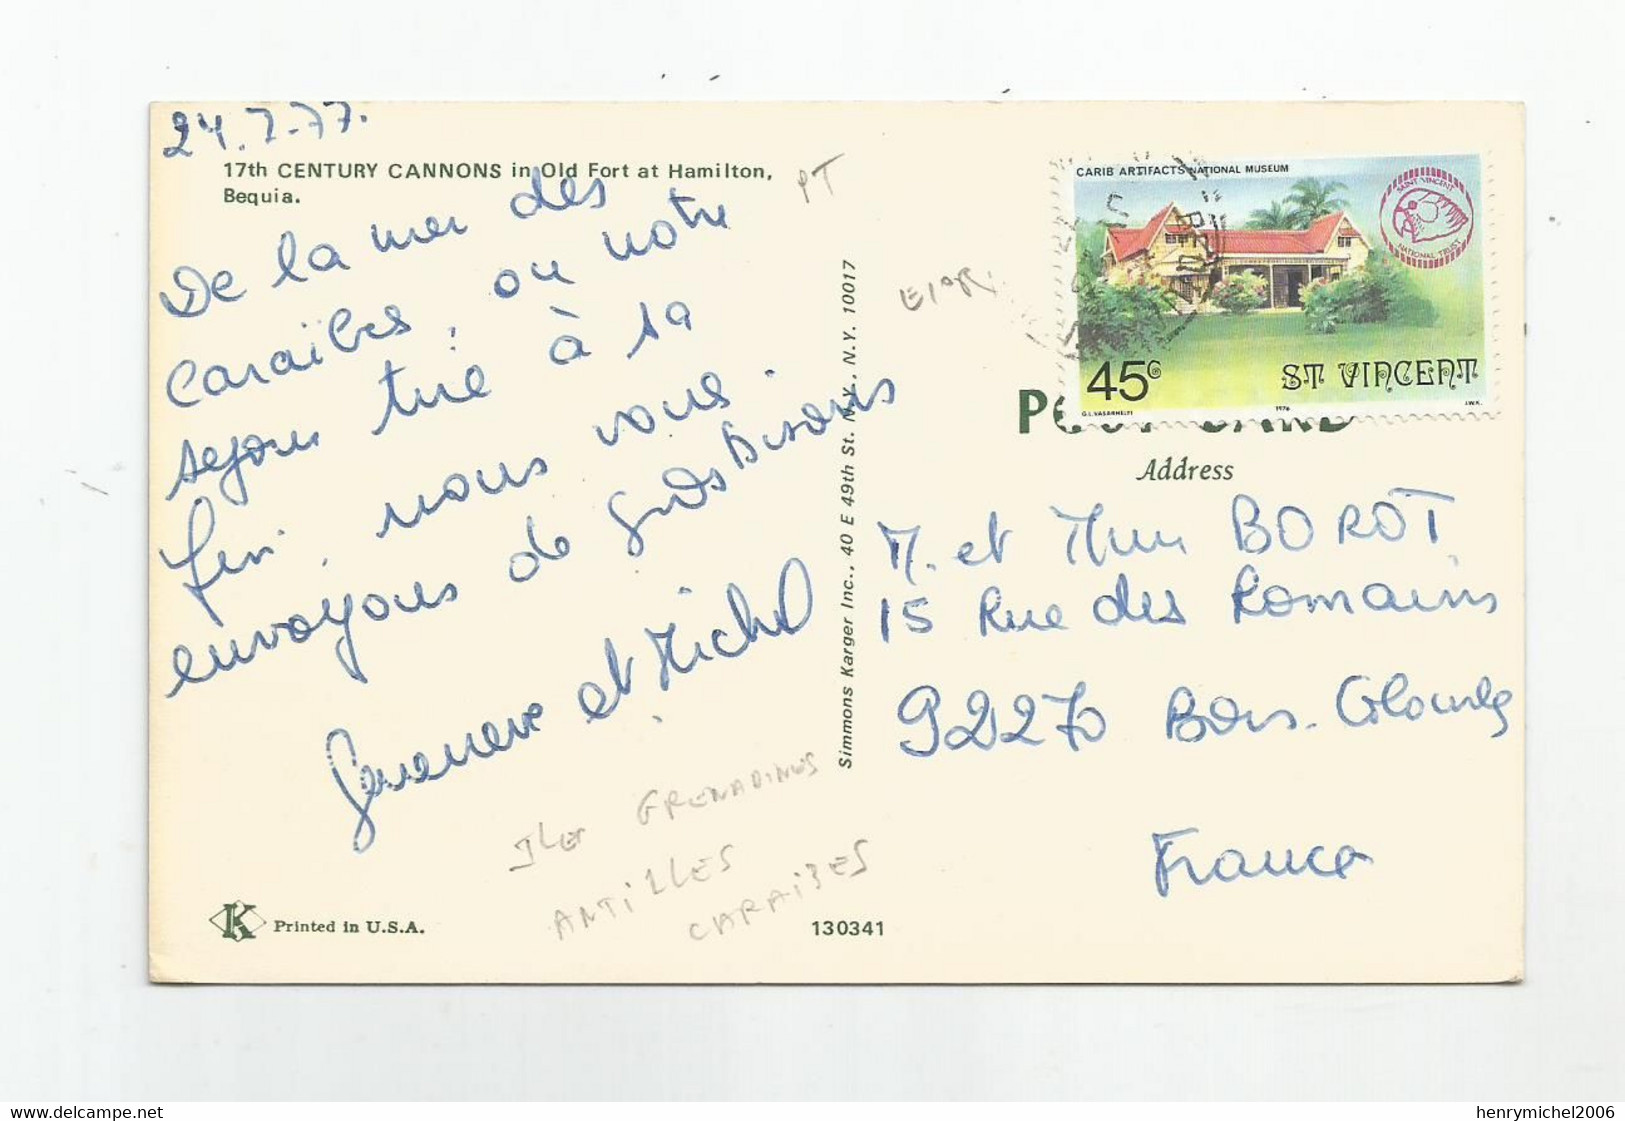 24.7-77.
17th CENTURY CANNONS in Old Fort at Hamilton,
Bequia.
De la mer des
Caraïbes, ou notre
sejour tire à sa
fin, nous vous
envoyons de gros bisous
Genevieve et Michel
PT
Simmons Karger Inc., 40 E 49th St. N.Y., N.Y. 10017
CARIB ARTIFACTS NATIONAL MUSEUM
SAINT VINCENT
NATIONAL TRUST
45c
ST VINCENT
G.L.VASARHELYI
1976
J.W.K.
POST CARD
Address
M. et Mme BOROT
15 Rue des Romains
92270 Bois-Colombes
France
ILE GRENADINES
ANTILLES
CARAIBES
K
Printed in U.S.A.
130341
www.delcampe.net
henrymichel2006